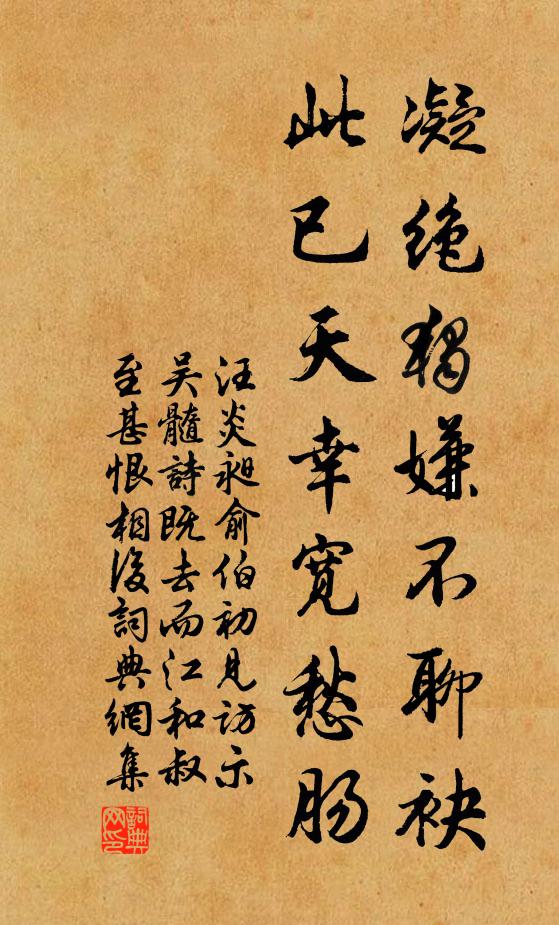 凝绝独嫌不聊袂
此已天幸宽愁肠
汪炎昶俞伯初见访示
吴髓詩既去而江和叔
至甚恨相後詞典網集
詞典网印